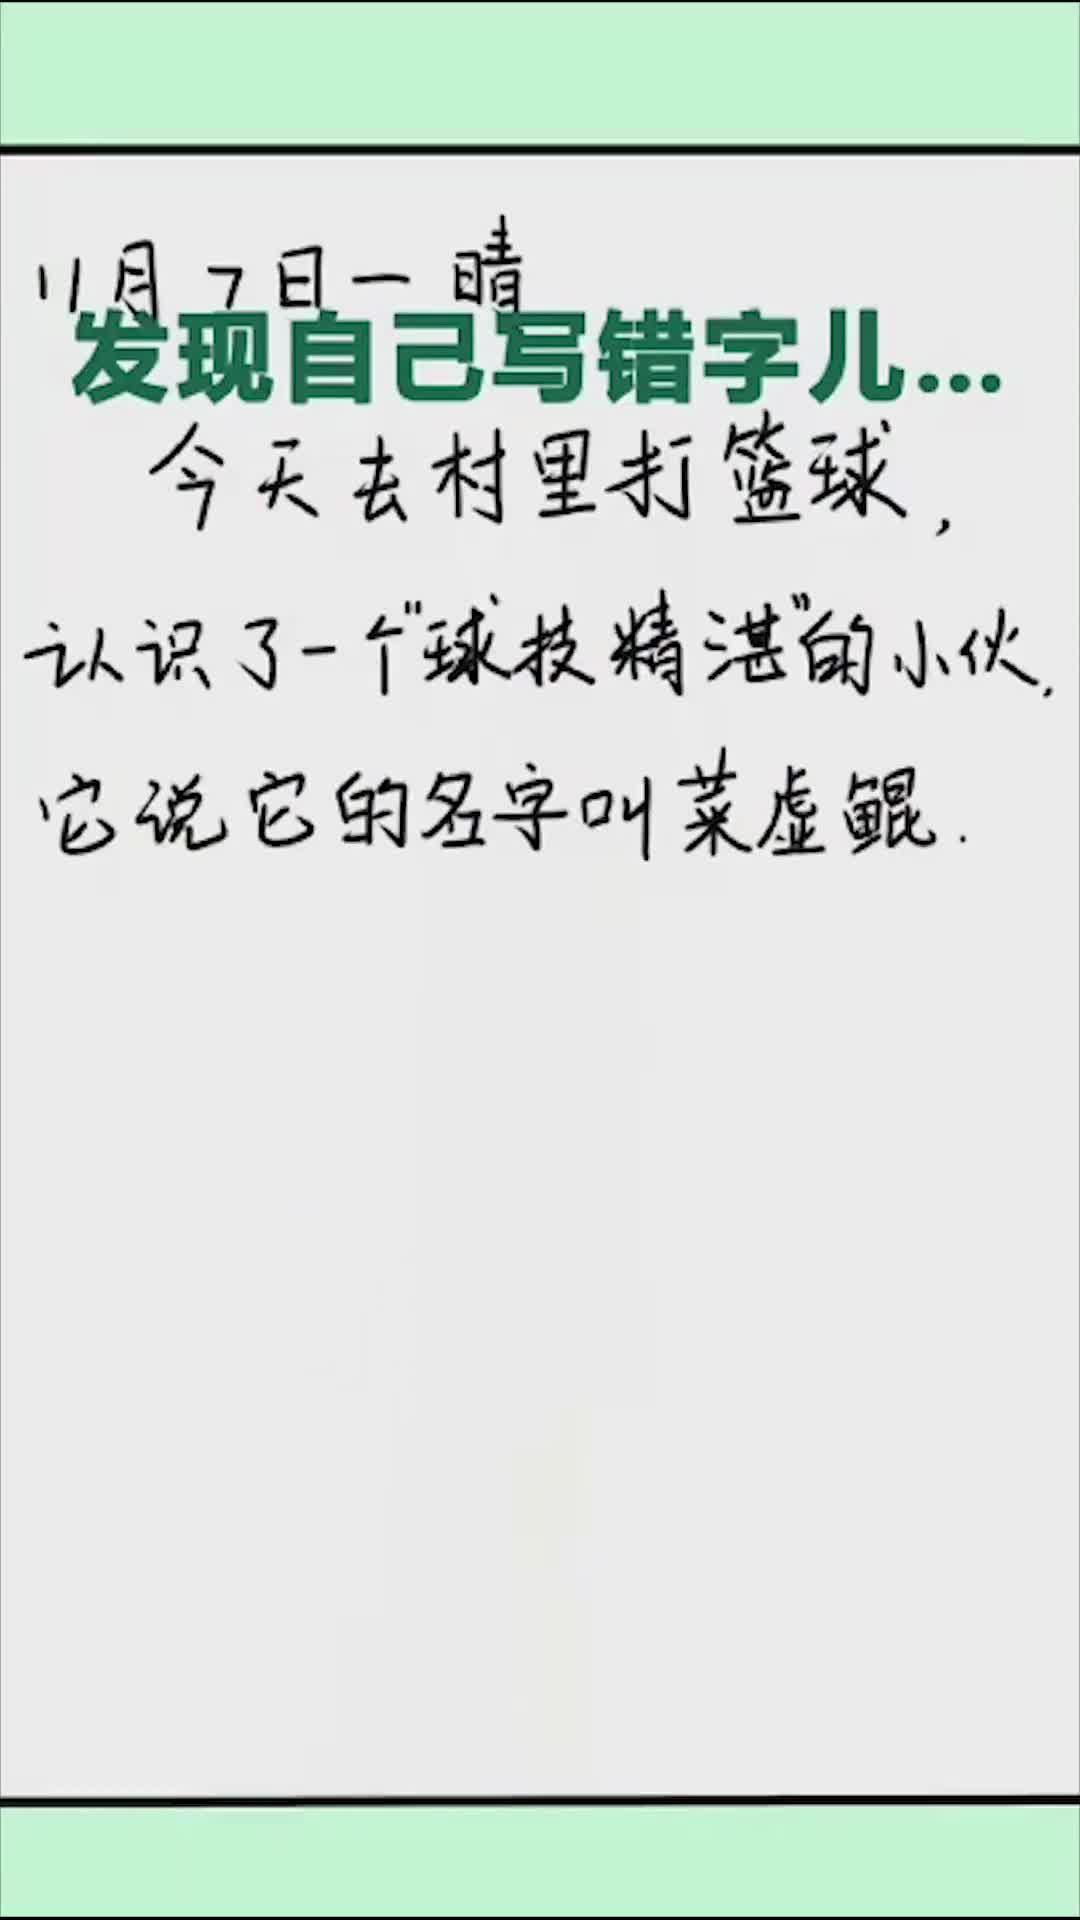 11月7日一晴
发现自己写错字儿...
今天去村里打篮球，
认识了一个"球技精湛"的小伙.
它说它的名字叫菜虚鲲.